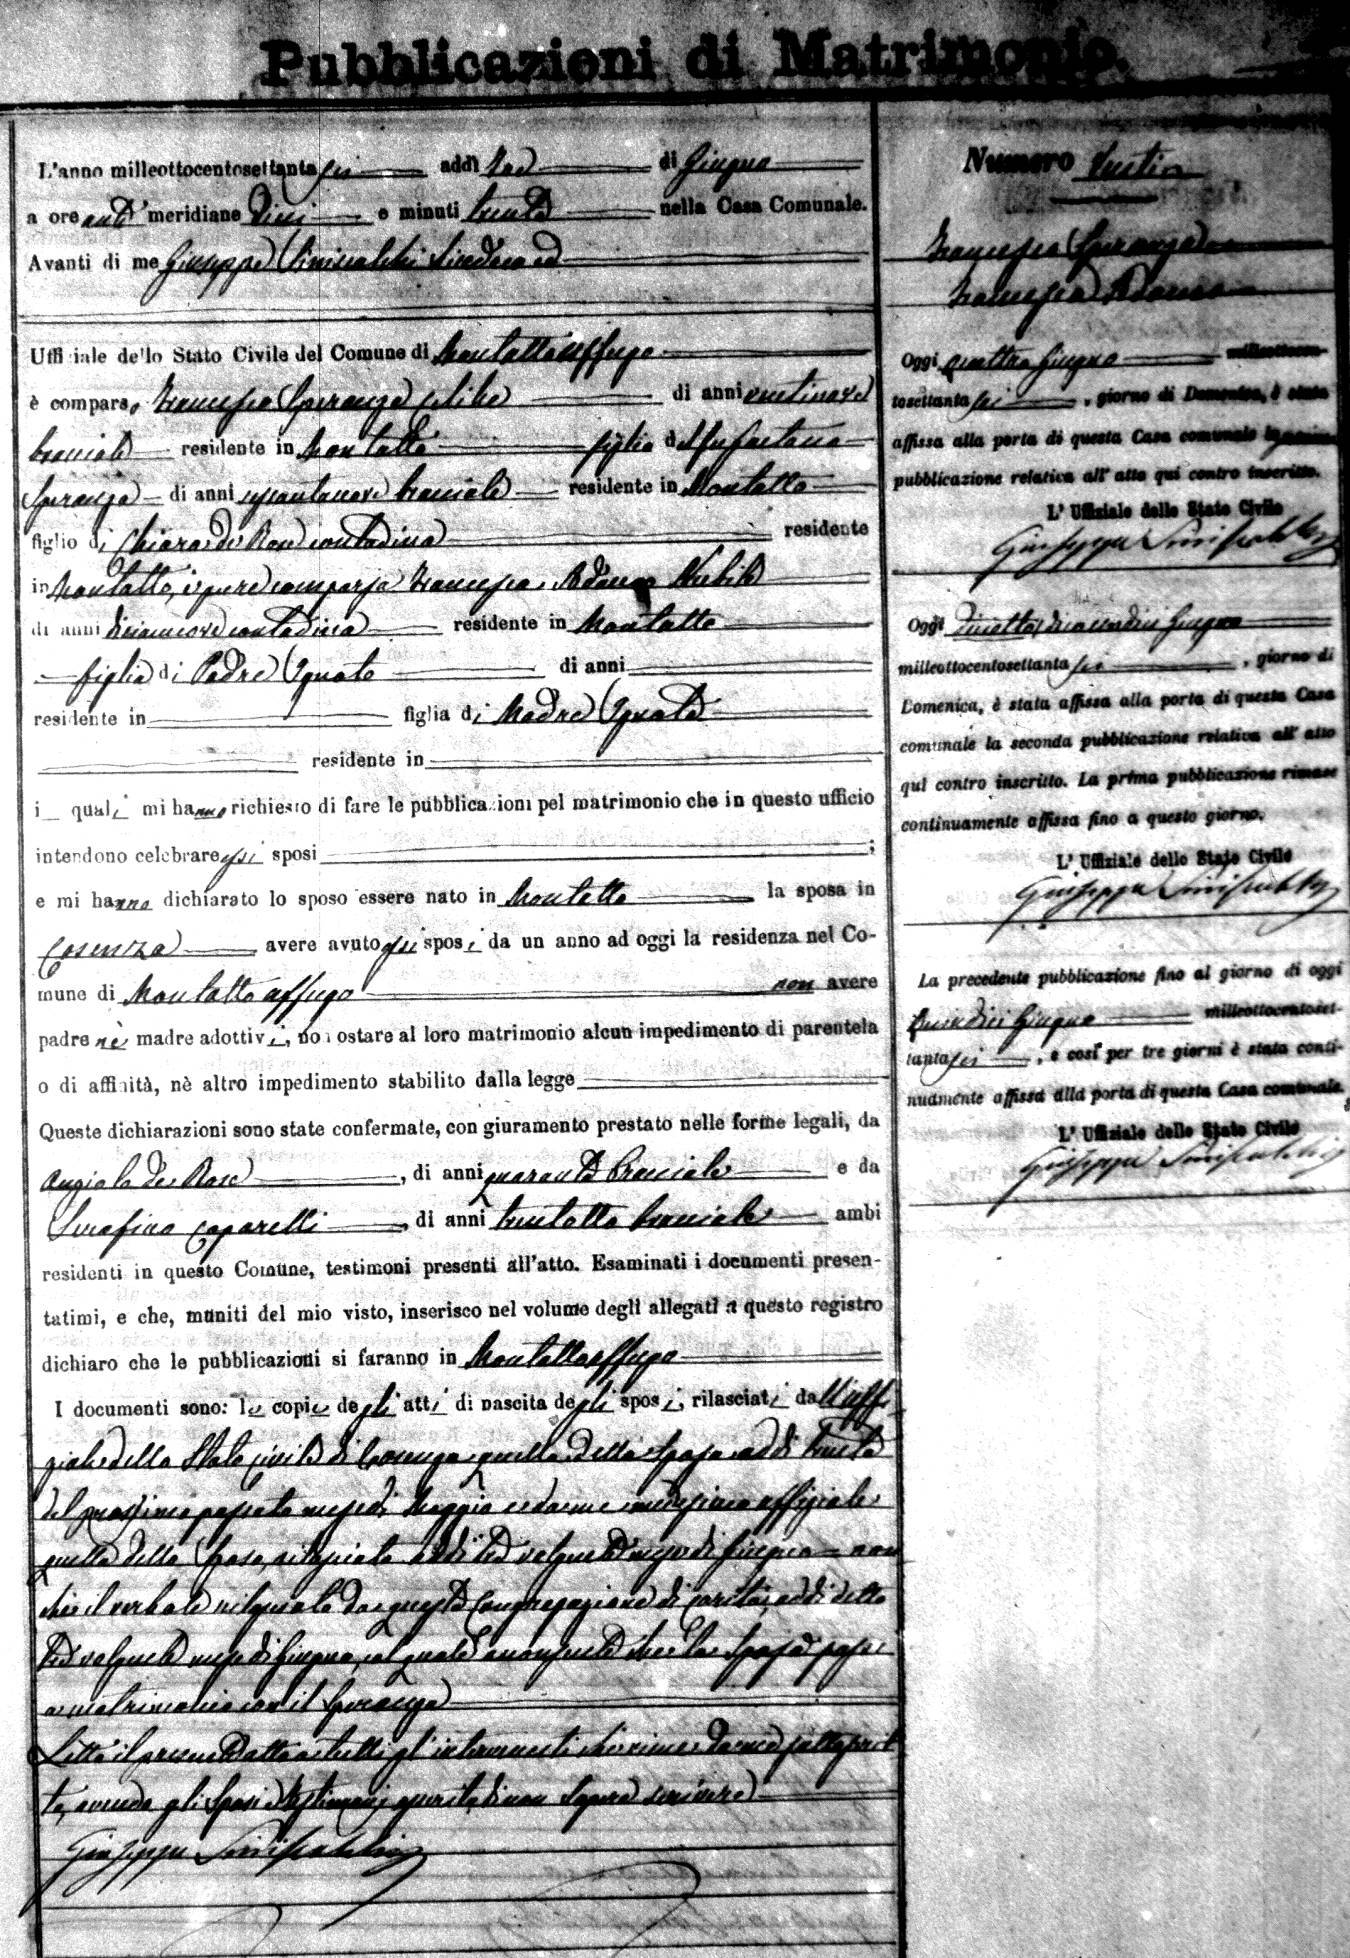 Pubblicazioni di Matrimonio.
L'anno milleottocentosettantasei addì tre di Giugno
a ore anti meridiane Dieci e minuti trenta nella Casa Comunale.
Avanti di me Giuseppe Siniscalchi Sindaco ed
Uffiziale dello Stato Civile del Comune di Montalto Uffugo
è comparso Francesco Speranza celibe di anni ventinove
bracciale residente in Montalto figlio di fu Gaetano
Speranza di anni sessantanove bracciale residente in Montalto
figlio di Chiara de Rose contadina residente
in Montalto, è pure comparsa Francesca Adamo Nubile
di anni diciannove contadina residente in Montalto
figlia di Padre Ignoto di anni
residente in figlia di Madre Ignota
residente in
i quali mi hanno richiesto di fare le pubblicazioni pel matrimonio che in questo ufficio
intendono celebrare essi sposi ;
e mi hanno dichiarato lo sposo essere nato in Montalto la sposa in
Cosenza avere avuto essi sposi da un anno ad oggi la residenza nel Co-
mune di Montalto Uffugo non avere
padre nè madre adottivi, non ostare al loro matrimonio alcun impedimento di parentela
o di affinità, nè altro impedimento stabilito dalla legge
Queste dichiarazioni sono state confermate, con giuramento prestato nelle forme legali, da
Angiolo de Rose, di anni quaranta bracciale e da
Serafino Caparelli, di anni trentotto bracciale ambi
residenti in questo Comune, testimoni presenti all'atto. Esaminati i documenti presen-
tatimi, e che, muniti del mio visto, inserisco nel volume degli allegati a questo registro
dichiaro che le pubblicazioni si faranno in Montalto Uffugo
I documenti sono: le copie degli atti di nascita degli sposi, rilasciati dall'uffi-
ziale dello Stato Civile di Cosenza quella della sposa addì trenta
del prossimo passato mese di Maggio e da me medesimo uffiziale
quella dello Sposo, rilasciata addì tre volgente mese di Giugno non
che il verbale rilasciato da questa Congregazione di carità addì detto
tre volgente mese di Giugno, col quale acconsente che la Sposa passi
a matrimonio con il Speranza
Letto il presente atto a tutti gl'intervenuti viene da me sottoscrit-
to, avendo gli Sposi e testimoni asserito di non sapere scrivere
Giuseppe Siniscalchi
Numero Venti
Francesco Speranza
Francesca Adamo
Oggi quattro Giugno milleottocen-
tosettantasei, giorno di Domenica, è stata
affissa alla porta di questa Casa comunale la prima
pubblicazione relativa all'atto qui contro inscritto.
L'Uffiziale dello Stato Civile
Giuseppe Siniscalchi
Oggi Giugno
milleottocentosettantasei, giorno di
Domenica, è stata affissa alla porta di questa Casa
comunale la seconda pubblicazione relativa all'atto
qui contro inscritto. La prima pubblicazione rimase
continuamente affissa fino a questo giorno.
L'Uffiziale dello Stato Civile
Giuseppe Siniscalchi
La precedente pubblicazione fino al giorno di oggi
quindici Giugno milleottocentoset-
tantasei, e così per tre giorni è stata conti-
nuamente affissa alla porta di questa Casa comunale.
L'Uffiziale dello Stato Civile
Giuseppe Siniscalchi